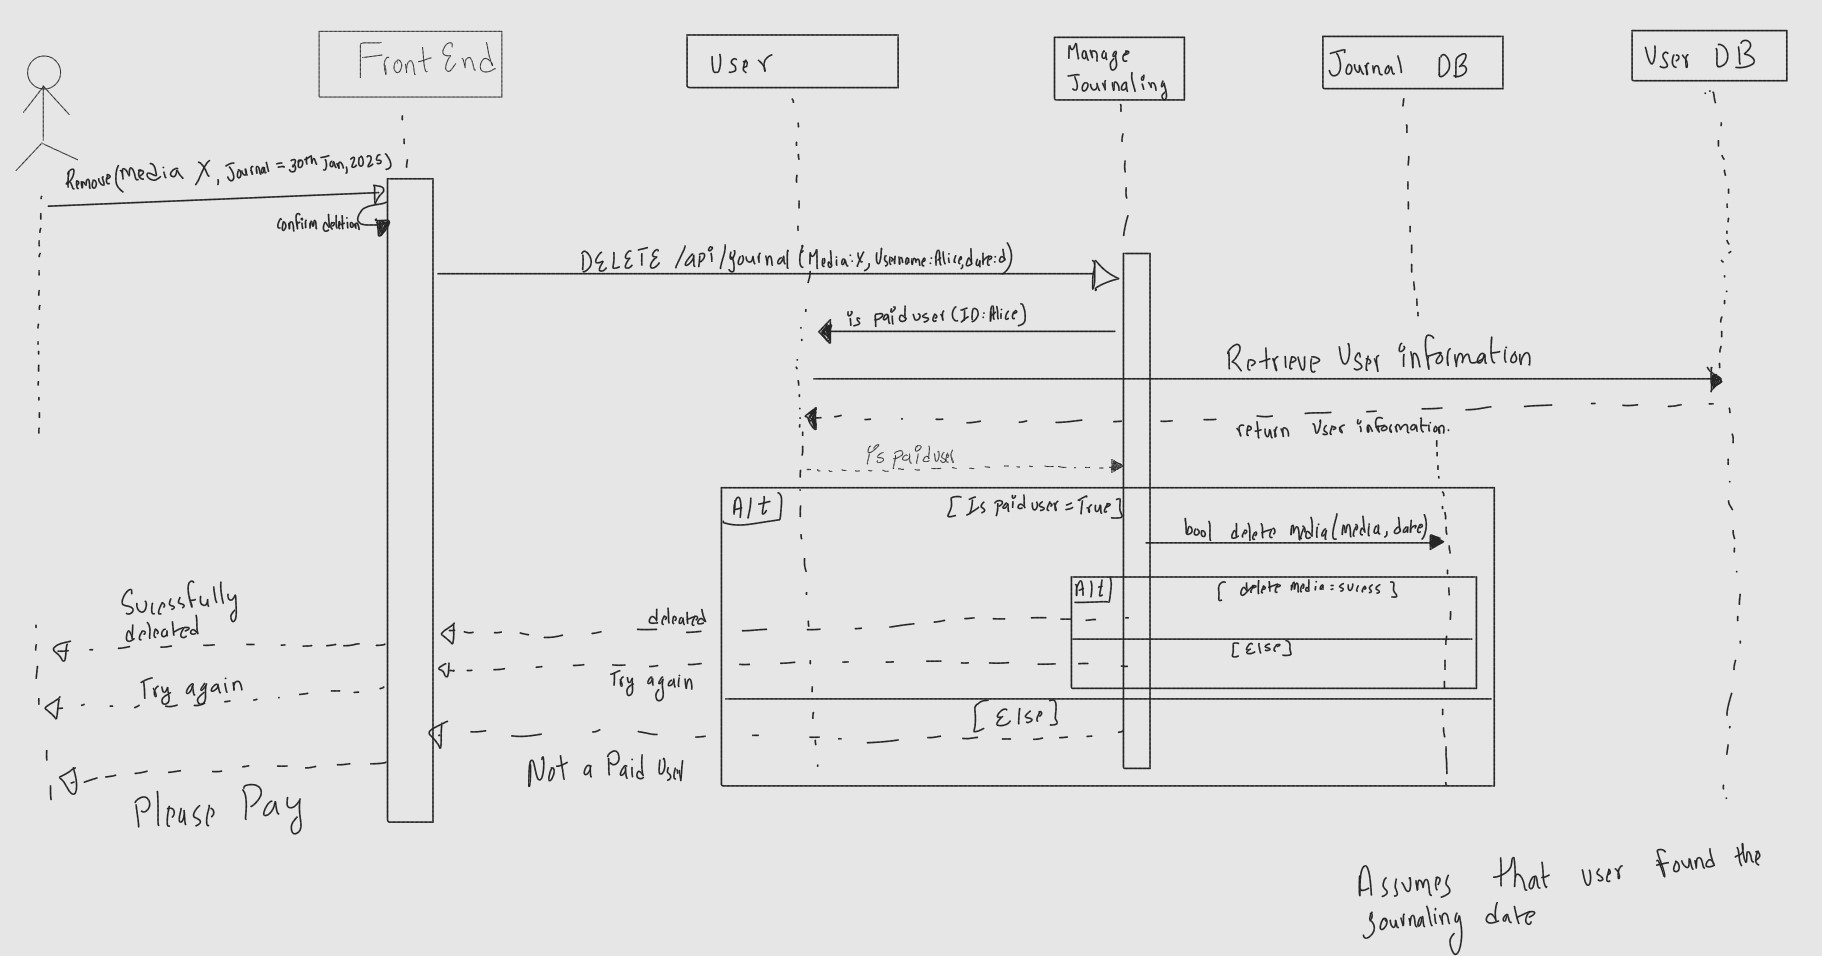 Front End
User
Manage
Journaling
Journal DB
User DB
Remove(Media X, Journal = 30th Jan, 2025)
Confirm deletion
DELETE /api/journal (Media:X, Username:Alice,date:d)
is paid user (ID:Alice)
Retrieve User information
return User information.
is paiduser
Alt
[Is paiduser = True]
bool delete media(media, date)
Alt
[ delete media = sucess ]
Sucessfully
deleated
deleated
[Else]
Try again
Try again
[Else]
Not a Paid User
Please Pay
Assumes that user found the
journaling date